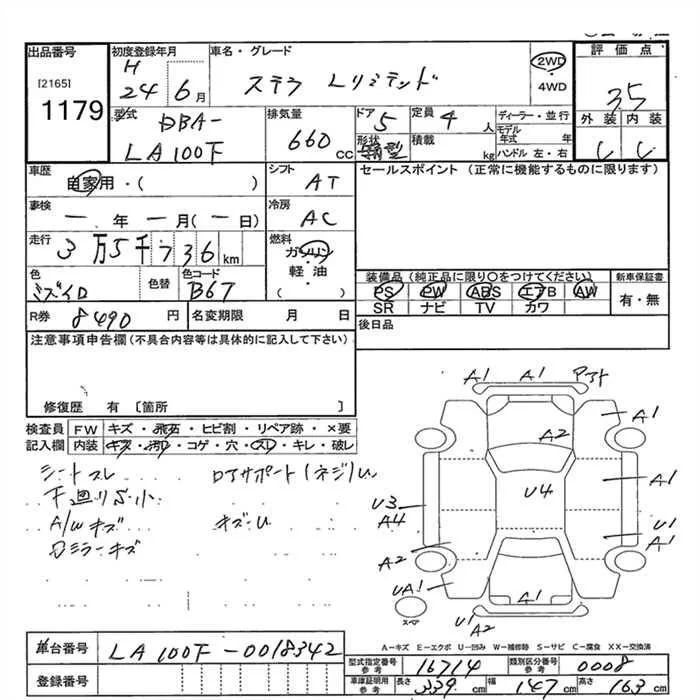 出品番号
[2165]
1179
初度登録年月
H
24 6月
車名・グレード
ステラ Lリミテッド
2WD
・
4WD
評価点
3.5
外装 内装
C C
型式
DBA-
LA100F
排気量
660 cc
ドア
5
形状
箱型
定員
4 人
積載
kg
ディーラー・並行
モデル
年式 年
ハンドル 左・右
車歴
自家用・( )
シフト
AT
車検
一年一月(一日)
冷房
AC
走行
3万5千736km
燃料
ガソリン
軽・油
( )
色
ミズイロ
色替
色コード
B67
R券 8490円
名変期限 月 日
セールスポイント (正常に機能するものに限ります)
装備品 (純正品に限り〇をつけてください)
PS PW ABS エアB AW
SR ナビ TV カワ
新車保証書
有・無
後日品
注意事項申告欄(不具合内容等は具体的に記入して下さい)
修復歴 有 〔箇所 〕
検査員
記入欄
FW キズ・飛石・ヒビ割・リペア跡・×要
内装 キズ・汚れ・コゲ・穴・スレ・キレ・破レ
シートスレ
下廻りS小
A/Wキズ
ロアサポート(ネジ)U
キズ・U
A1 A1
A1
A2
A1
U4
U3
A4
U1
A1
A2
UA1
A1
U1
A2
スペア
A-キズ E-エクボ U-凹み W-補修跡 S-サビ C-腐食 XX-交換済
車台番号 LA100F-0018342
登録番号
型式指定番号
参考
16714
類別区分番号
参考
0008
車庫証明用
参考
長さ 339cm 幅 147cm 高さ 163cm